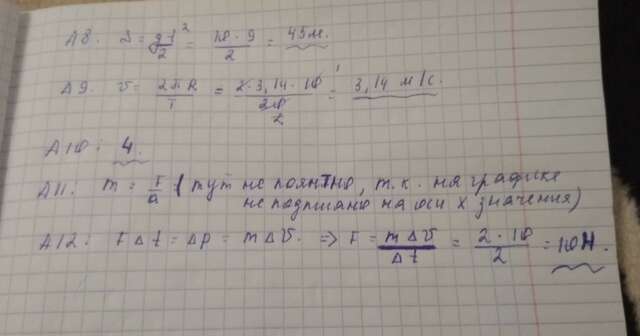 А8. S = gt²/2 = 10·9/2 = 45м.
А9. v = 2πR/T = 2·3,14·10/20 = 3,14 м/с.
А10: 4.
А11. m = F/a (тут не понятно, т.к. на графике
не подписано на оси х значения)
А12. FΔt = Δp = mΔv. => F = mΔv/Δt = 2·10/2 = 10Н.